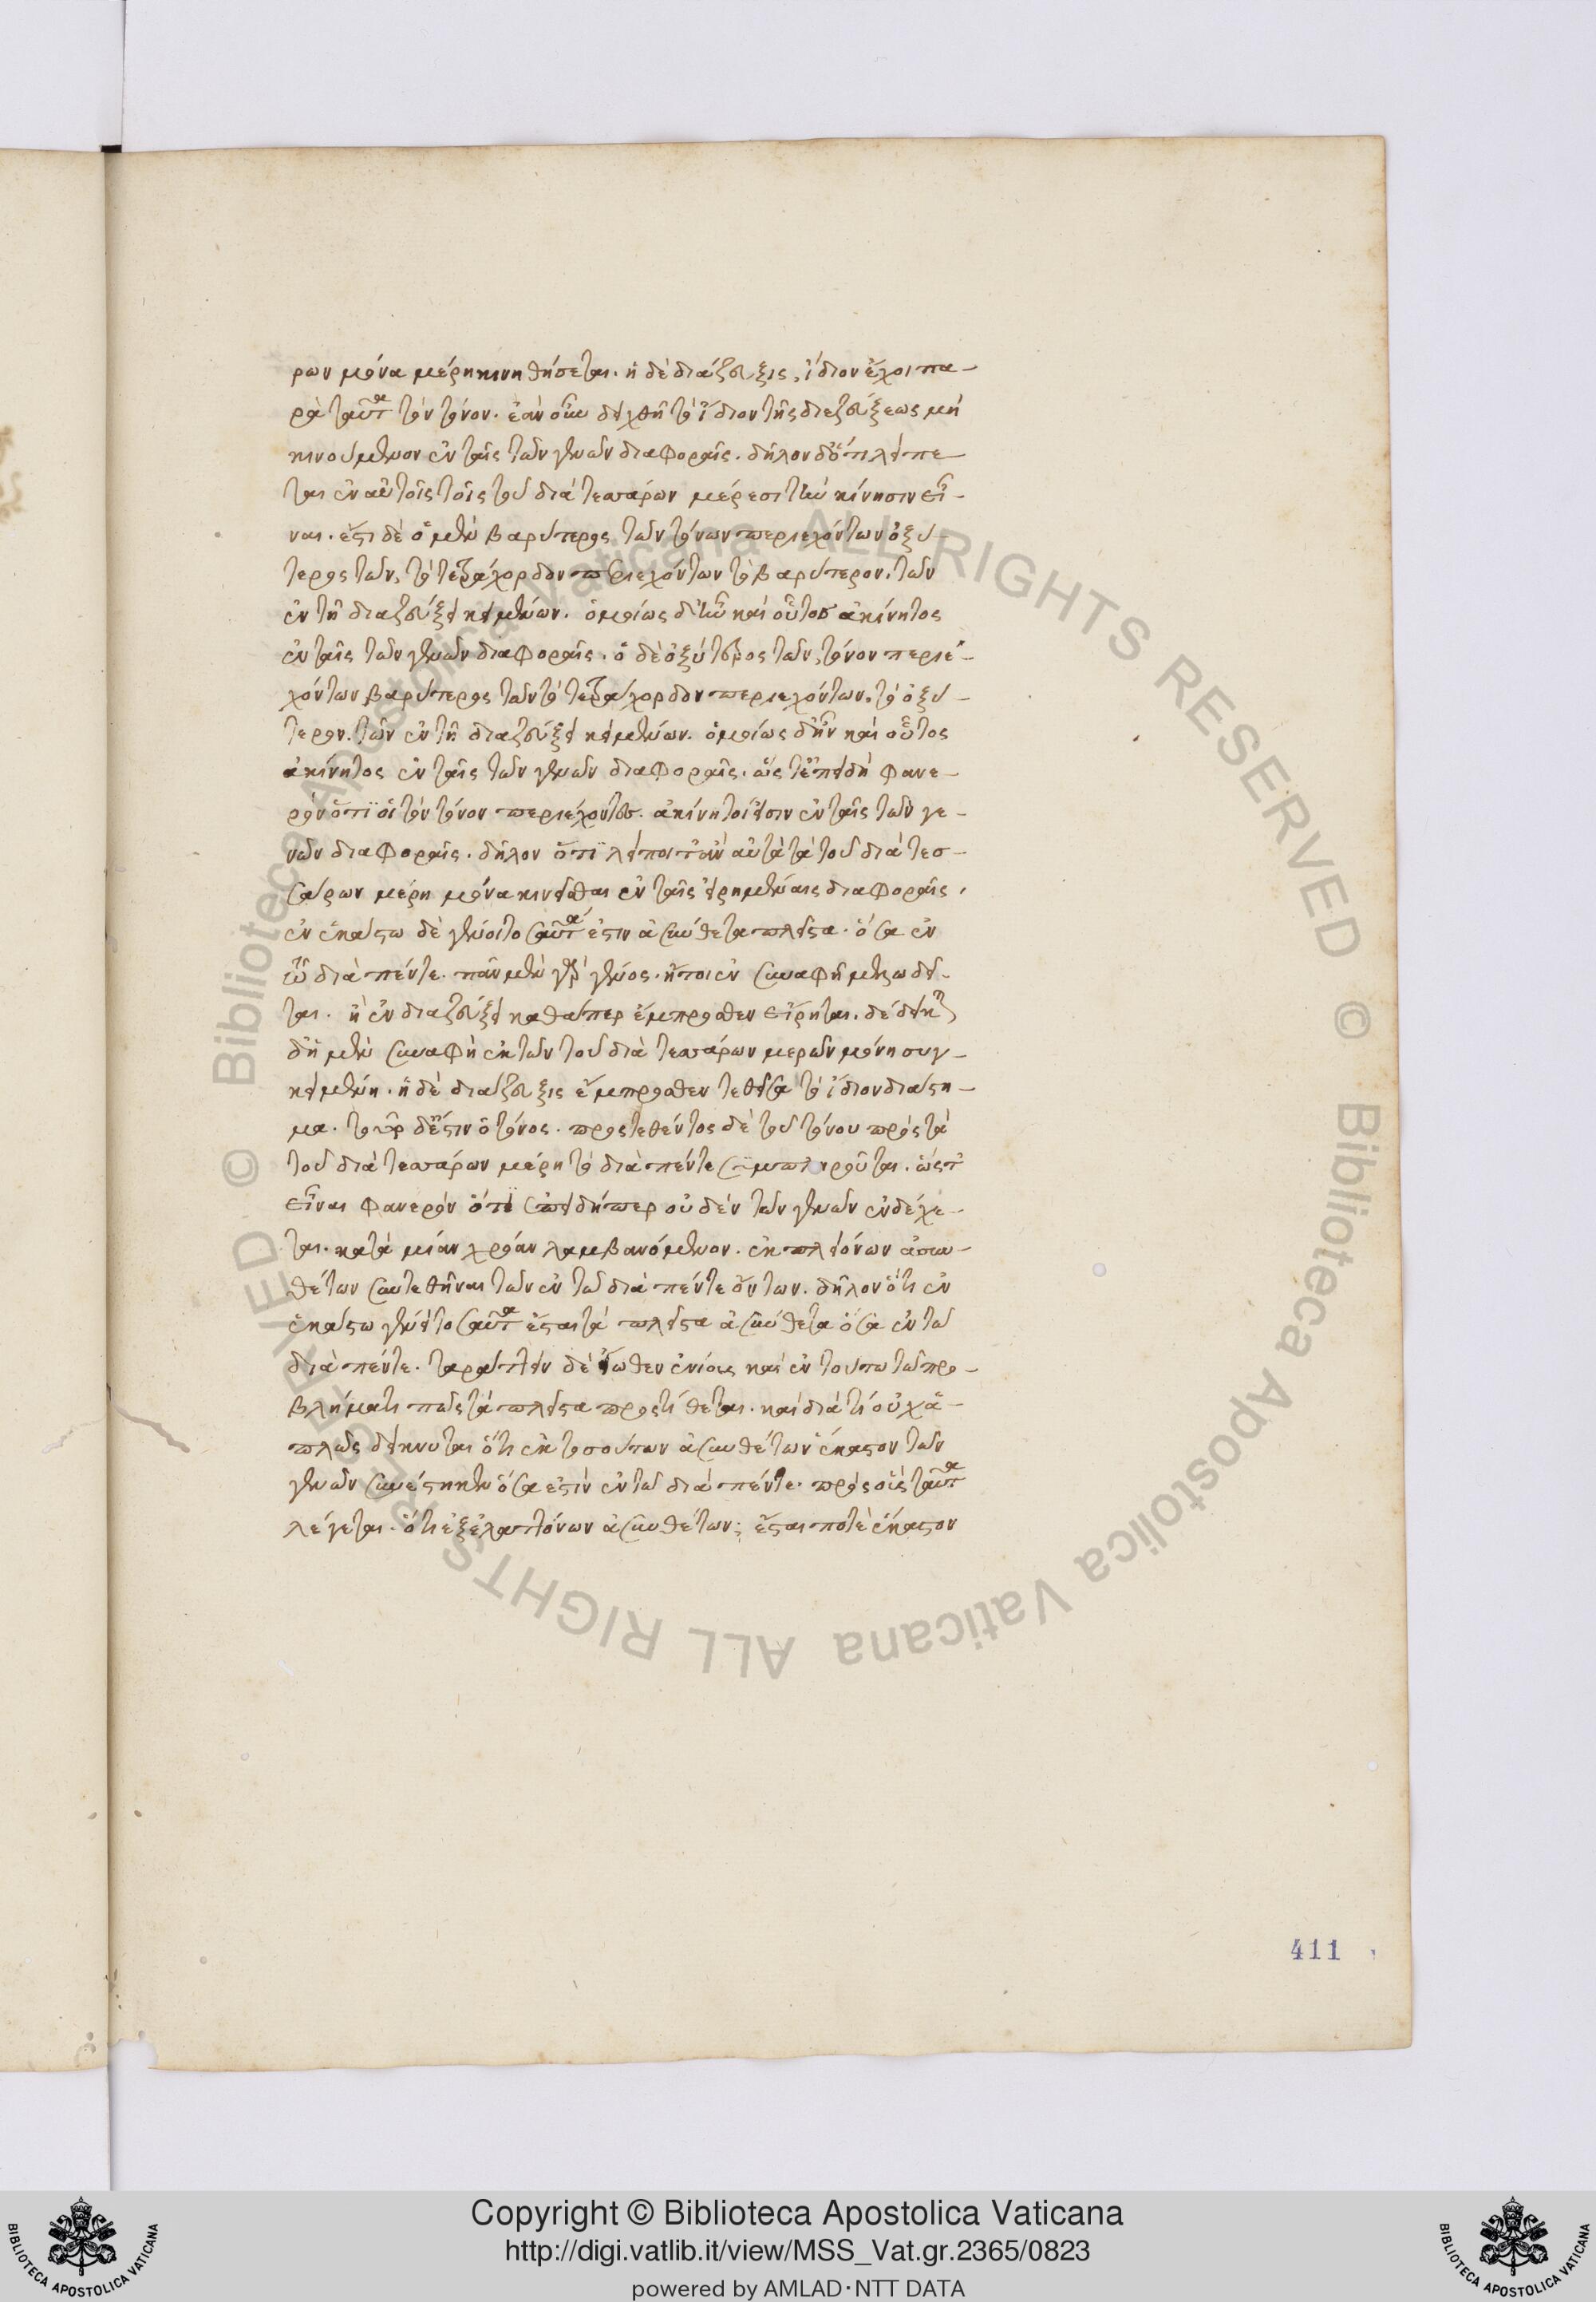 ρων μόνα μέρη κινηθήσεται. ἡ δὲ διάζευξις, ἴδιον ἔχει πα-
ρὰ ταῦτα τὸν τόνον. ἐὰν οὖν δειχθῇ τὸ ἴδιον τῆς διεζεύξεως μὴ
κινούμενον ἐν ταῖς τῶν γενῶν διαφοραῖς. δῆλον δ' ὅτι λείπε
ται ἐν αὐτοῖς τοῖς τοῦ διὰ τεσσάρων μέρεσι τὴν κίνησιν εἶ-
ναι. ἔστι δὲ ὁ μὲν βαρύτερος τῶν τόνων περιεχόντων ὀξύ-
τερος τῶν, τὸ τετράχορδον περιεχόντων τὸ βαρύτερον. τῶν
ἐν τῇ διαζεύξει κειμένων. ὁμοίως δ' ἦν καὶ οὗτος ἀκίνητος
ἐν ταῖς τῶν γενῶν διαφοραῖς. ὁ δὲ ὀξύτερος τῶν, τόνον περιε-
χόντων βαρύτερος τῶν τὸ τετράχορδον περιεχόντων. τὸ ὀξύ-
τερον. τῶν ἐν τῇ διαζεύξει κειμένων. ὁμοίως δ' ἦν καὶ οὗτος
ἀκίνητος ἐν ταῖς τῶν γενῶν διαφοραῖς. ὥστ' ἐπειδὴ φανε-
ρὸν ὅτι οἱ τὸν τόνον περιέχοντες. ἀκίνητοί εἰσιν ἐν ταῖς τῶν γε-
νῶν διαφοραῖς. δῆλον ὅτι λείποιτ' ἂν αὐτὰ τὰ τοῦ διὰ τεσ-
σάρων μέρη μόνα κινεῖσθαι ἐν ταῖς εἰρημέναις διαφοραῖς.
ἐν ἑκάστω δὲ γένοιτο σαῦτα ἐστιν ἀσύνθετα πλεῖστα. ὅσα ἐν
τῶ διὰ πέντε. πᾶν μὲν γὰρ γένος. ἤτοι ἐν συναφῇ μελωδεῖ-
ται. ἢ ἐν διαζεύξει καθάπερ ἔμπροσθεν εἴρηται. δέδεικται
δ' ἡ μὲν συναφὴ ἐκ τῶν τοῦ διὰ τεσσάρων μερῶν μόνη συγ-
κειμένη. ἡ δὲ διάζευξις ἔμπροσθεν τεθεῖσα τὸ ἴδιον διάστη-
μα. τοῦτο δ' ἐστιν ὁ τόνος. προστεθέντος δὲ τοῦ τόνου πρὸς τὰ
τοῦ διὰ τεσσάρων μέρη τὸ διὰ πέντε συμπληροῦται. ὥστ'
εἶναι φανερὸν ὅτι ἐπειδήπερ οὐδὲν τῶν γενῶν ἐνδέχε-
ται. κατὰ μίαν χρόαν λαμβανόμενον. ἐκ πλειόνων ἀσυν-
θέτων συντεθῆναι τῶν ἐν τῶ διὰ πέντε ὄντων. δῆλον ὅτι ἐν
ἑκάστω γένει τοσαῦτα ἔσται τὰ πλεῖστα ἀσύνθετα ὅσα ἐν τῶ
διὰ πέντε. ταράττειν δ' εἴωθεν ἐνίους καὶ ἐν τούτω τῶ προ-
βλήματι πῶς τὰ πλεῖστα προστίθεται. καὶ διὰ τί οὐχ ἁ-
πλῶς δείκνυται ὅτι ἐκ τοσούτων ἀσυνθέτων ἕκαστον τῶν
γενῶν συνέστηκεν ὅσα ἐστὶν ἐν τῶ διὰ πέντε. πρὸς οὓς ταῦτα
λέγεται. ὅτι ἐξ ἐλαττόνων ἀσυνθέτων; ἔσται ποτὲ ἕκαστον
411
Copyright © Biblioteca Apostolica Vaticana
http://digi.vatlib.it/view/MSS_Vat.gr.2365/0823
powered by AMLAD·NTT DATA
BIBLIOTECA APOSTOLICA VATICANA
BIBLIOTECA APOSTOLICA VATICANA
© Biblioteca Apostolica Vaticana ALL RIGHTS RESERVED © Biblioteca Apostolica Vaticana ALL RIGHTS RESERVED